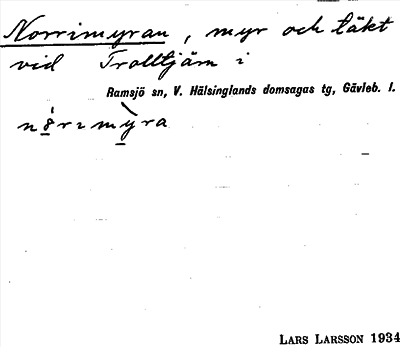 Norrimyran, myr och täkt
vid Trolltjärn i
Ramsjö sn, V. Hälsinglands domsagas tg, Gävleb. l.
LARS LARSSON 1934